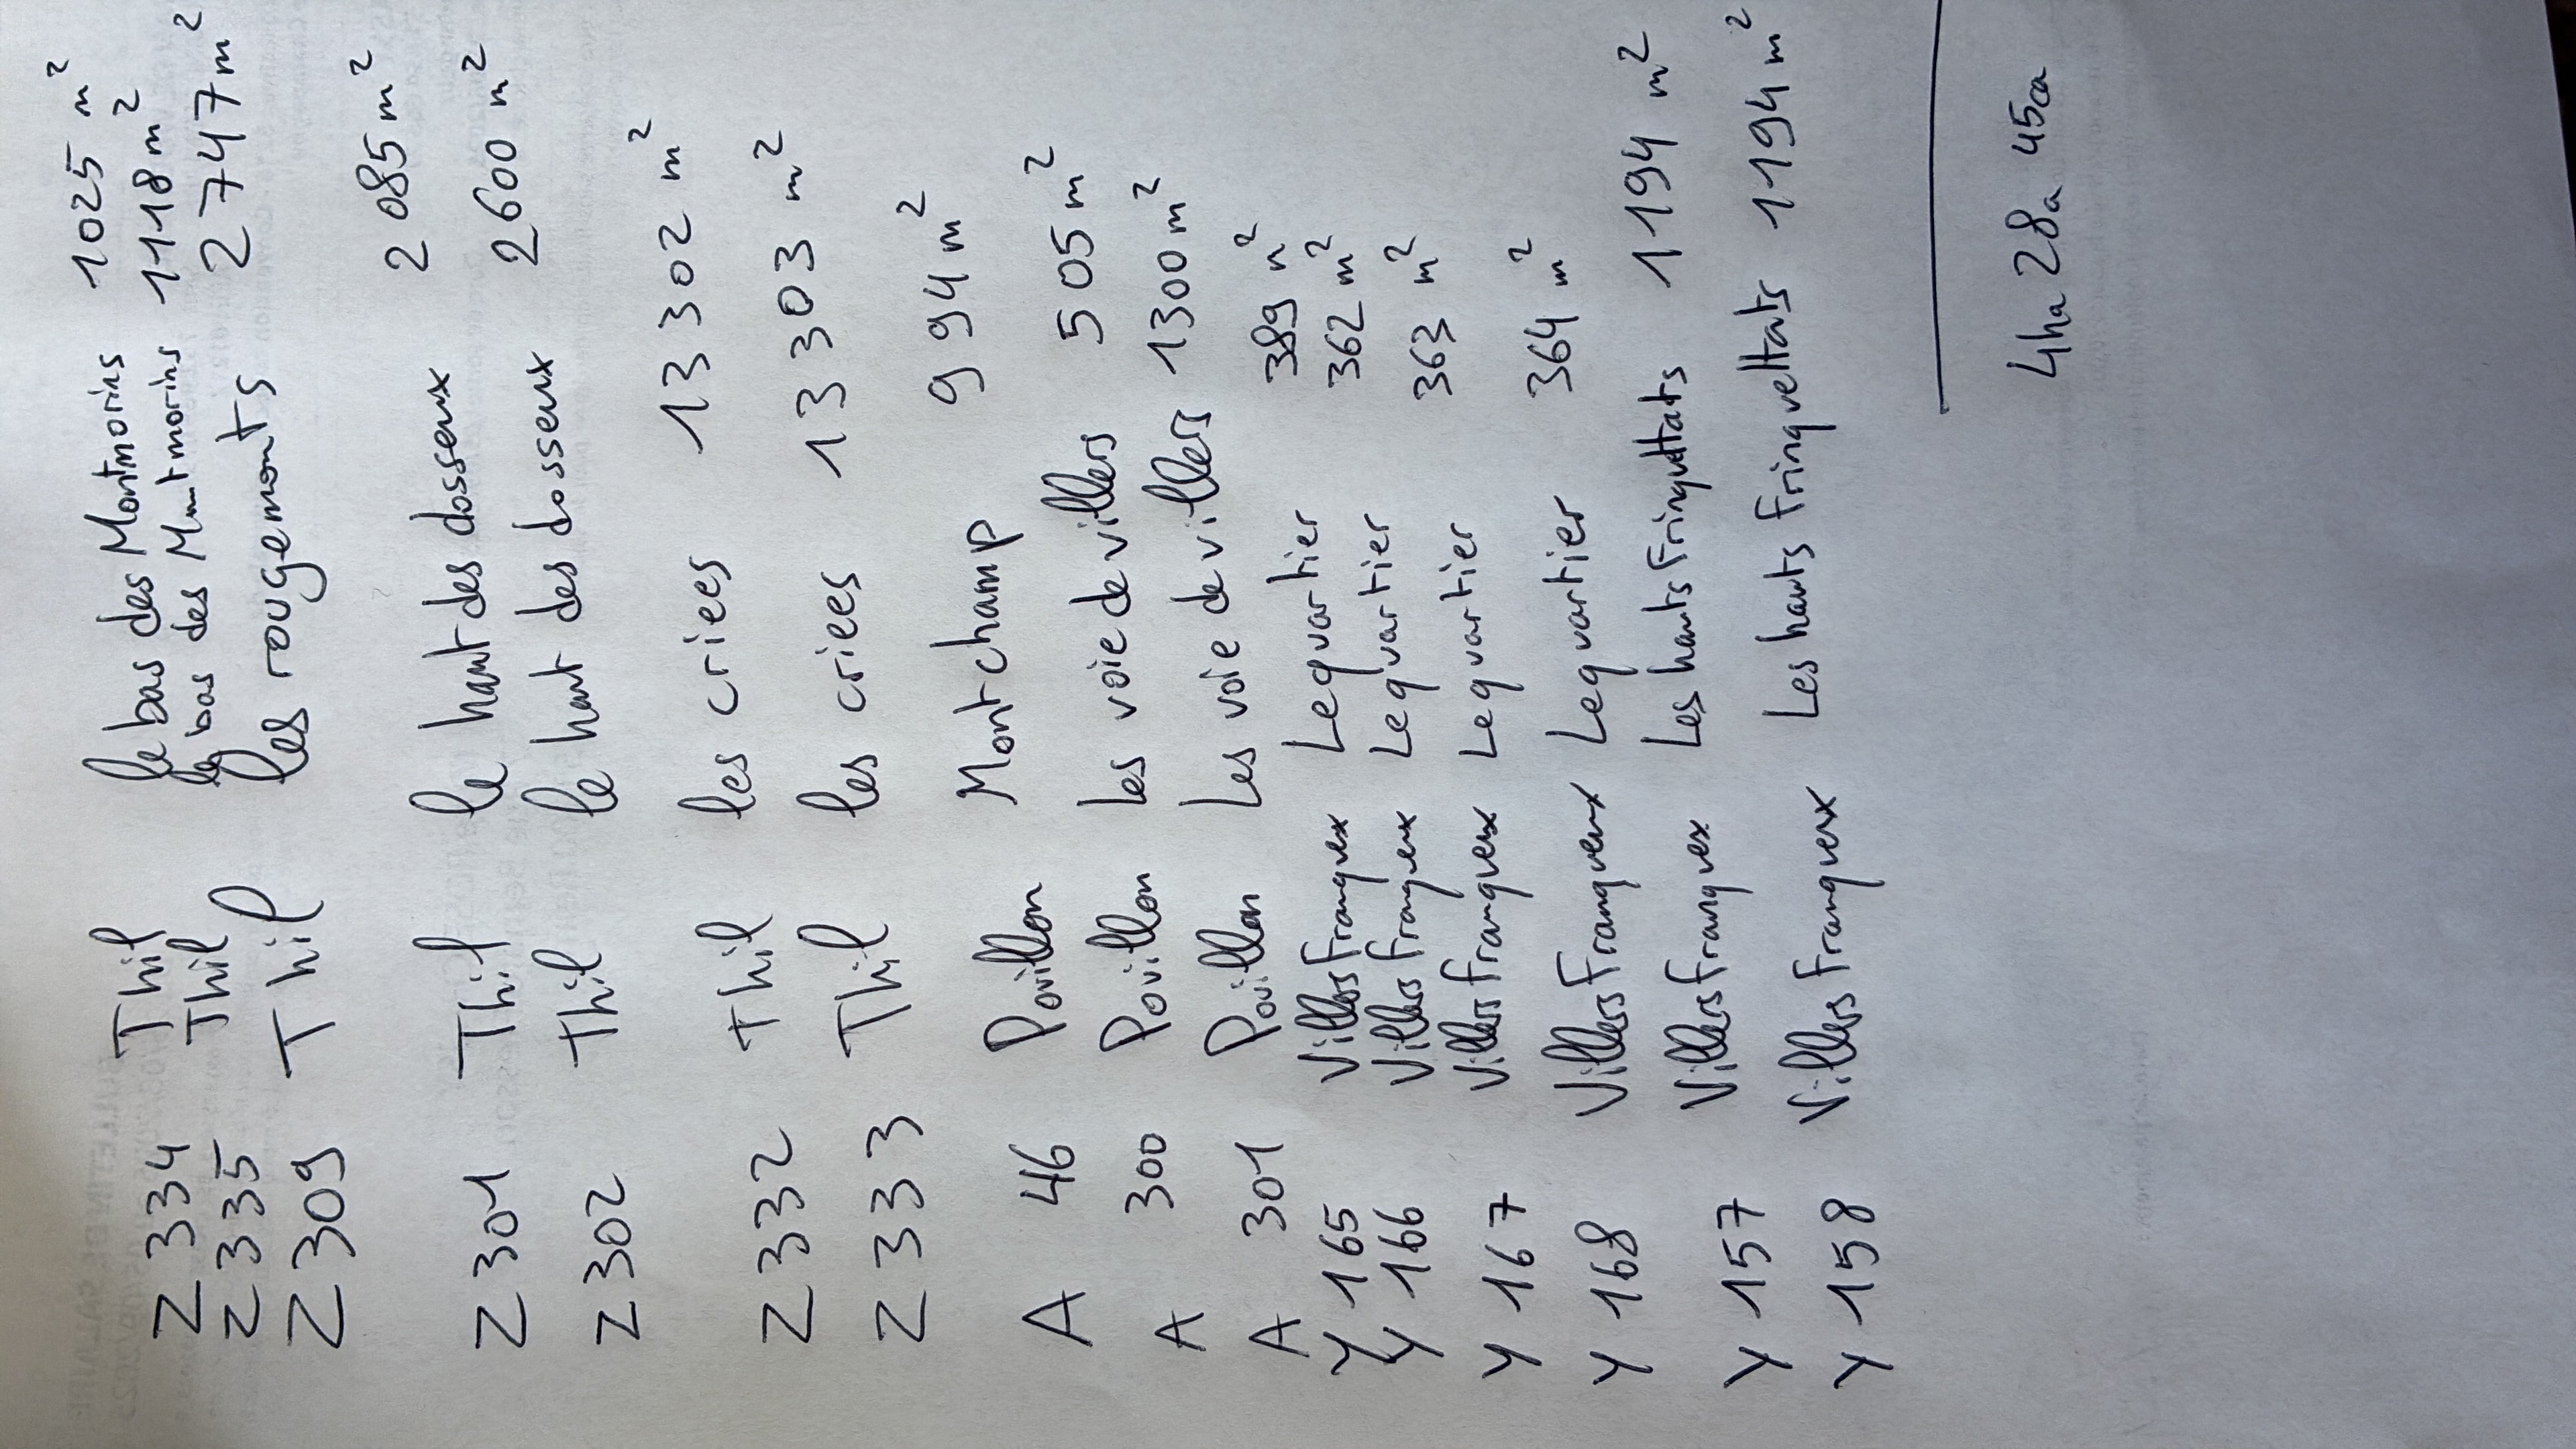 Z 334 Thil le bas des Montmorins 1025 m²
Z 335 Thil le bas des Montmorins 1118 m²
Z 309 Thil les rougemonts 2747 m²
Z 301 Thil le haut des dosseux 2085 m²
Z 302 Thil le haut des dosseux 2600 m²
Z 332 Thil les criees 13302 m²
Z 333 Thil les criees 13303 m²
A 46 Pouillon Montchamp 994 m²
A 300 Pouillon Les voie de villers 505 m²
A 301 Pouillon Les voie de villers 1300 m²
Y 165 Villers Franqueux Le quartier 389 m²
Y 166 Villers Franqueux Le quartier 362 m²
Y 167 Villers Franqueux Le quartier 363 m²
Y 168 Villers Franqueux Le quartier 364 m²
Y 157 Villers Franqueux Les hauts Fringuettats 1194 m²
Y 158 Villers Franqueux Les hauts Fringuettats 1194 m²
4ha 28a 45ca